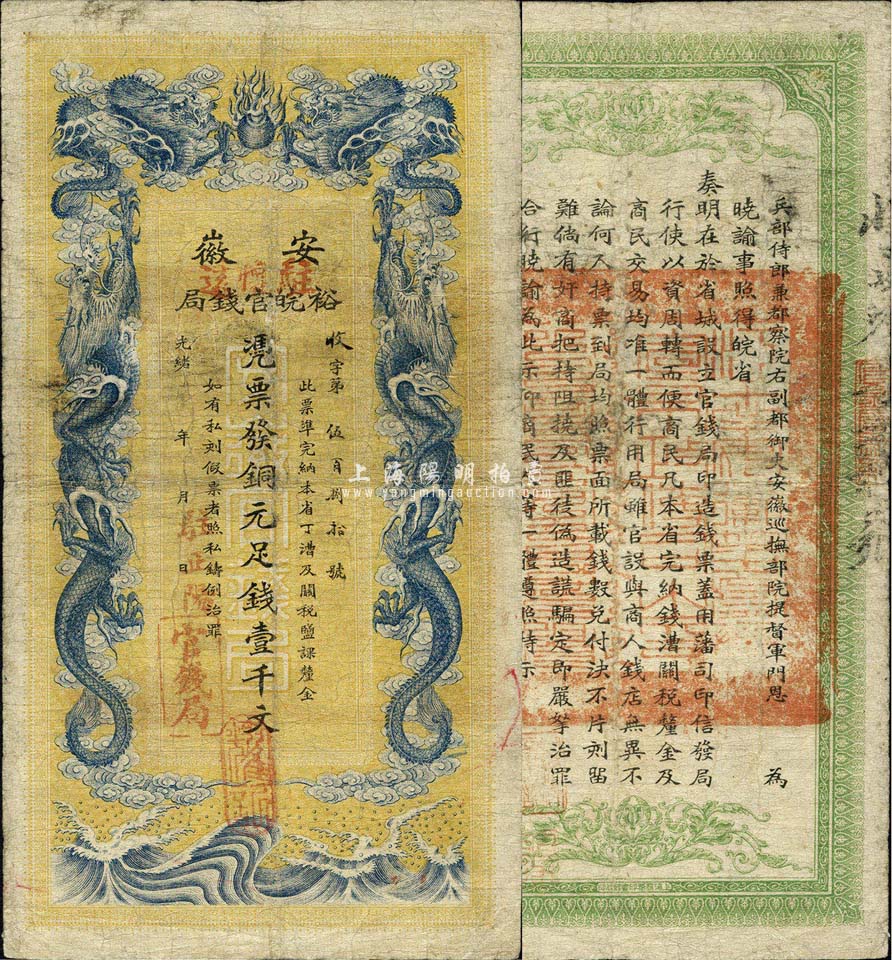 安徽
裕皖官錢局
收字第伍百捌拾號
此票準完納本省丁漕及關稅鹽課釐金
憑票發銅元足錢壹千文
如有私刻假票者照私鑄例治罪
光緒年月日
官錢局
兵部侍郎兼都察院右副都御史安徽巡撫部院提督軍門恩 為
曉諭事照得皖省
奏明在於省城設立官錢局印造錢票蓋用藩司印信發局
行使以資周轉而便商民凡本省完納錢漕關稅釐金及
商民交易均准一體行用局雖官設與商人錢店無異不
論何人持票到局均照票面所載錢數兌付決不片刻留
難倘有奸商把持阻撓及匪徒偽造誆騙定即嚴拏治罪
合行曉諭為此示仰商民人等一體遵照特示
上海陽明拍賣
www.yangmingauction.com